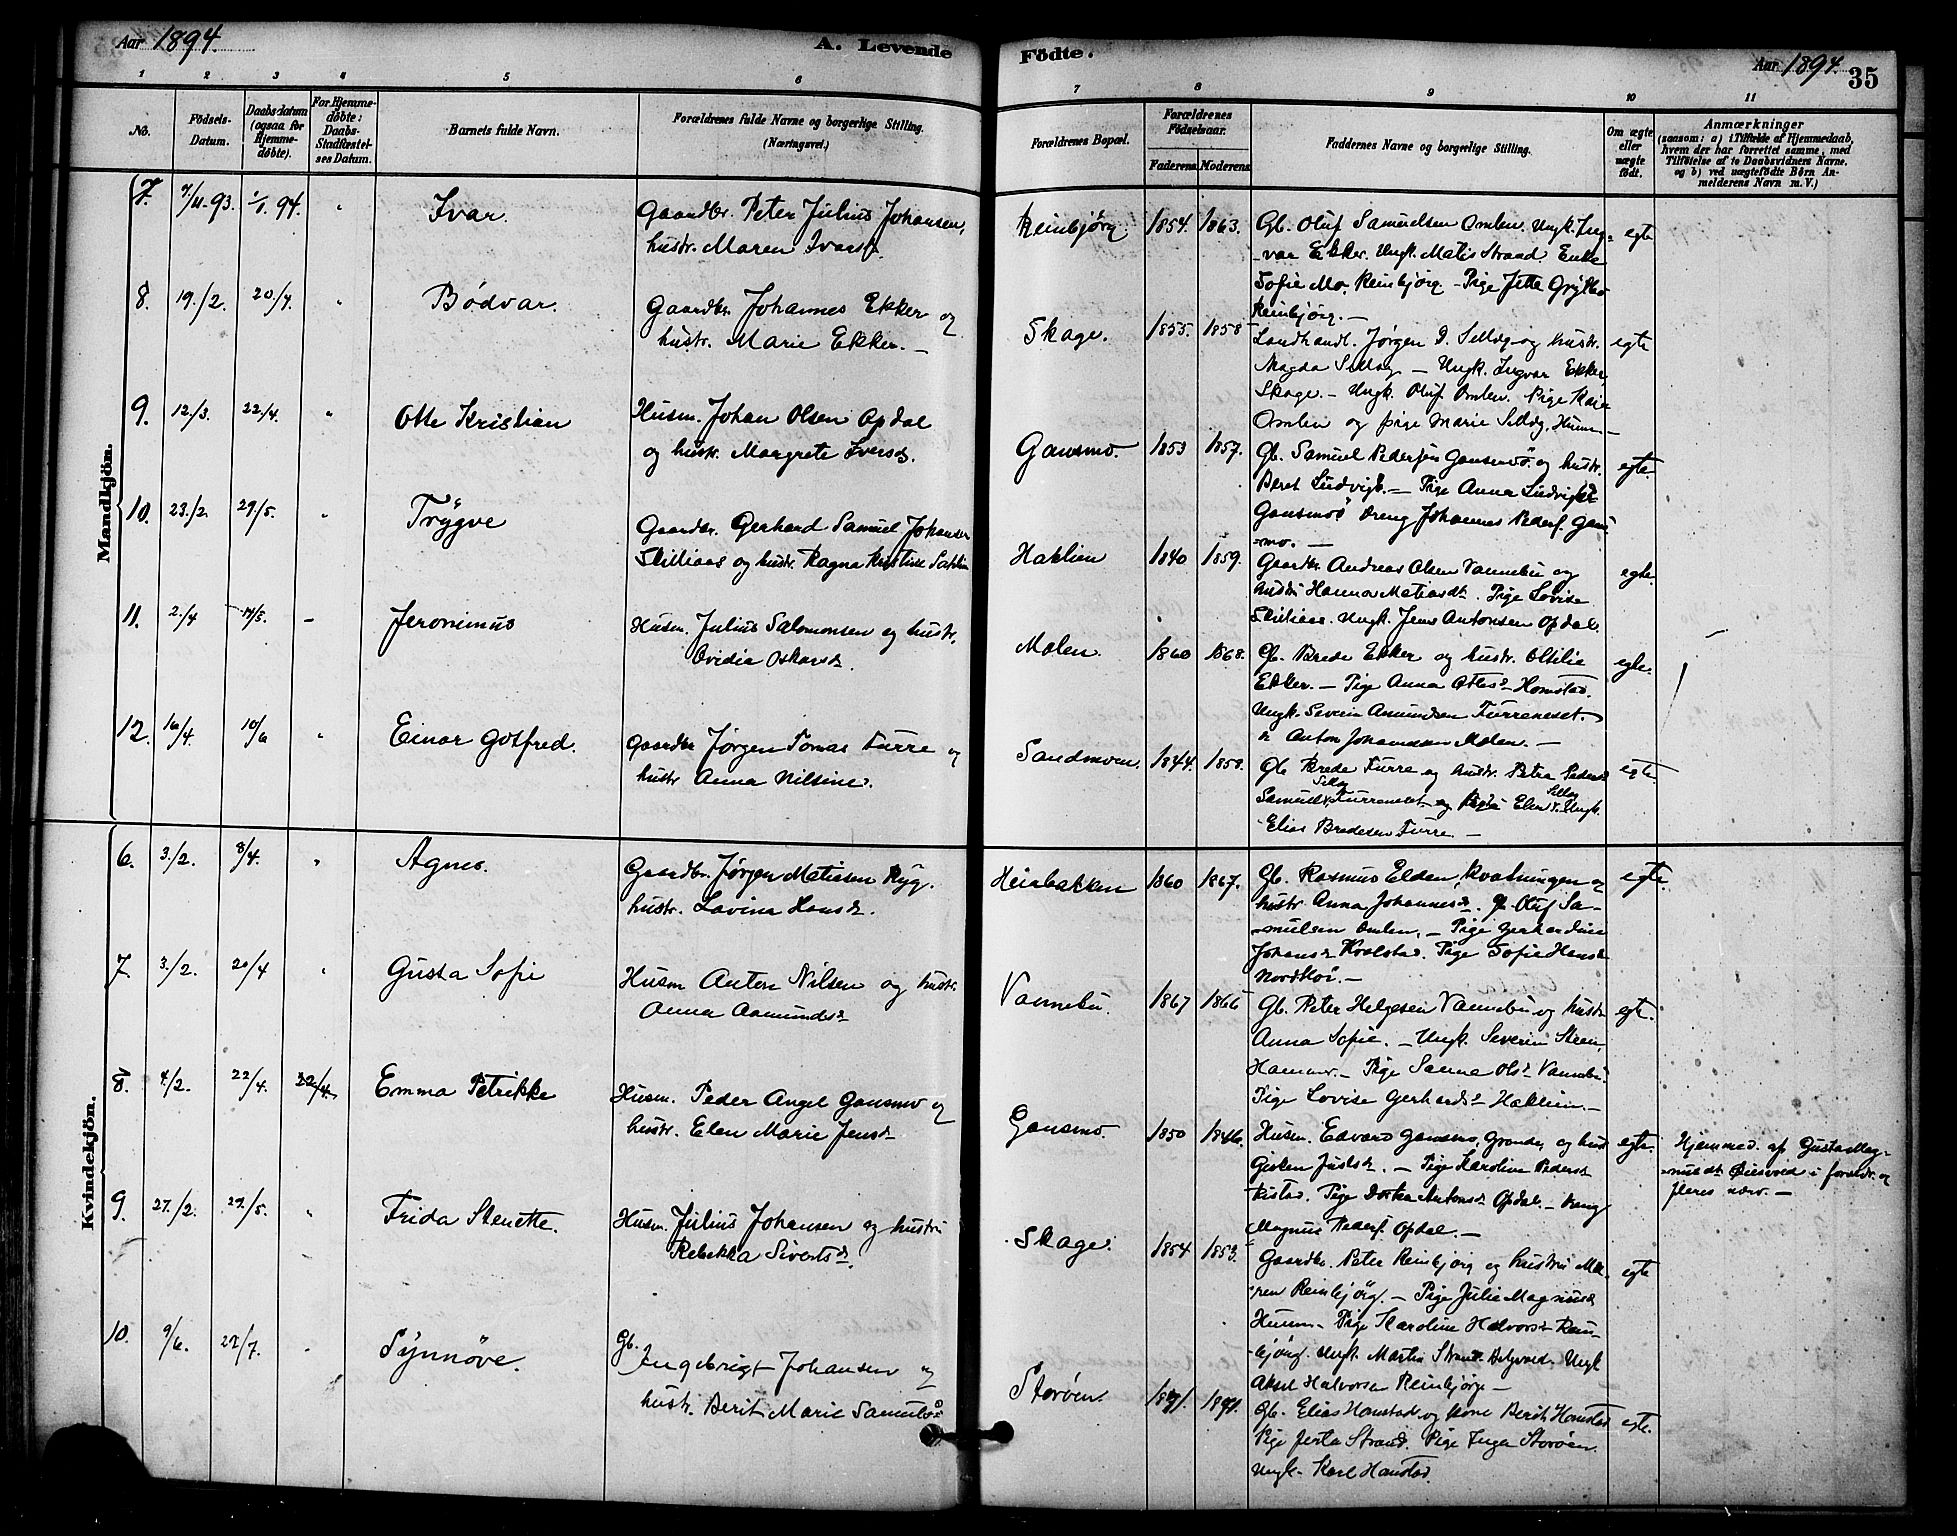 Aar 1894.
A. Levende
Födte.
Aar 1894. 35
1 2 3 4 5 6 7 8 9 10 11
No.
Födsels-Datum.
Daabsdatum (ogsaa for Hjemme-döbte).
For Hjemme-döbte: Daabs-Stadfæstel-ses Datum.
Barnets fulde Navn.
Forældrenes fulde Navne og borgerlige Stilling. (Næringsvei.)
Forældrenes Bopæl.
Forældrenes Födselsaar.
Faderens. Moderens.
Faddernes Navne og borgerlige Stilling.
Om ægte eller uægte födt.
Anmærkninger
(saasom: a) i Tilfælde af Hjemmedaab,
hvem der har forrettet samme, med
Tilföielse af to Daabsvidners Navne.
og b) ved uægtefödte Börn An-
melderens Navn m. V.)
Mandkjön.
7. 7/11-93. 1/1. 94. " Ivar. Gaardbr. Peter Julius Johansen,
hustr. Maren Iversd.
Reinbjørg 1854. 1863. Gb. Oluf Samuelsen Omlen. Ungk. Ing-
-var Ekker. Ungk. Matis Strand. Enke
Sofie Mo. Reinbjørg - Pige Jette Grylbo
Reinbjørg. -
egte
8. 19./2. 20/4. " Bødvar. Gaardbr. Johannes Ekker og
hustr. Marie Ekker. -
Skage. 1855. 1858 Landhandl. Jørgen D. Sellæg og hustr.
Magda Sellæg - Ungk. Ingvar Ekker,
Skage. - Ungk. Oluf Omlen. Pige Kaja
Omlen og pige Marie Sellæg, Hunn. -
egte
9. 12./3. 22./4. " Otto Kristian Husm. Johan Olsen Opdal
og hustr. Margrete Iversd.
Gansmo. 1853 1857. Gb. Samuel Pedersen Gansmo og hustr.
Beret Ludvigd. - Pige Anna Ludvigsd
Gansmo Dreng Johannes Peders. Gans
-mo. -
egte.
10. 23./2. 29/5. " Trÿgve Gaardbr. Gerhard Samuel Johansen
og hustr. Ragna Kristine
Haklien 1840 1859. Gaardbr. Andreas Olsen Vannebu og
hustru Hanna Matiasdt. Pige Lovise
Ungk. Jens Antonsen Opdal.
egte
11. 2./4 14/5. - Jeronimus Husm. Julius Salomonsen og hustr.
Ovidia Oskarsd.
Molen. 1860 1868. Gb. Brede Ekker og hustr. Otilie
Ekker. - Pige Anna Otesd. Homstad.
Ungk. Severin Amundsen Furreneset.
Anton Johannesen Molen. -
egte.
12. 16/4. 10/6 " Einar Gotfred. Gaardbr Jørgen Tomas Furre og
hustr Anna Nilsine.
Sandmoen. 1844. 1858. Gb Brede Furre og hustr. Petra Pedersd
Samuel Furreneset og Pige Elen Ungk.
Elias Bredesen Furre. -
egte.
Kvindekjön.
6. 3./2. 8/4. " Agnes. Gaardbr. Jørgen Matiasen Ryg.
hustr. Lovina Hansd.
Heiabakken 1860 1867. Gb. Rasmus Elden, Kvatningen og
hustr. Anna Johannesd. Gb. Oluf Sa-
-muelsen Omlen. - Pige Gerhardine
Johansd Kvalstad. Pige Sofie Hansd
-
egte.
7. 3./2. 20/4 " Gusta Sofie Husm Anton Nilsen og hustr.
Anna Aamundsd
Vannebu. 1867 1866 Gb. Peter Helgesen Vannebu og hustr
Anna Sofie. - Ungk. Severin Steen,
Hammer. - Pige Sanna Olsd Vannebu.
Pige Lovise Gerhardsd Haklien. -
egte.
8. 4./2. 22/4. 22/4. Emma Petrikke Husm. Peder Angel Gansmo og
hustr. Elen Marie Jensd
Gansmo. 1850 1846. Husm. Edvard Gansmo, Grande, og hust
Gjeken Justsd. - Pige Karoline Pedersd
Pige Dortea Antonsd Opdal. - Dreng
Magnus Peders. Opdal. -
egte. Hjemmed. af Gusta Mag-
-nusdt. i foreldr. og
fleres nærv. -
9. 27./2. 27./5. " Frida Stenette. Husm. Julius Johansen og hustru
Rebekka Sivertsd.
Skage. 1854 1853. Gaardbr. Peter Reinbjørg og hustru Ma-
-ren Reinbjørg. - Pige Julie Magnusd
Hunn. - Pige Karoline Halvorsd Rein-
-bjørg. Ungk. Martin Strand. Ungk
Aksel Halvorsen Reinbjørg -
egte
10. 9/6. 22/7. . Synnöve. Gb. Ingebrigt Johansen og
hustr. Berit Marie
Storöen. Gb. Elias Homstad og kone Berit Homstad
Pige Jerta Strand. Pige Inga Storöen.
Ungk. Karl Homstad.
egte.